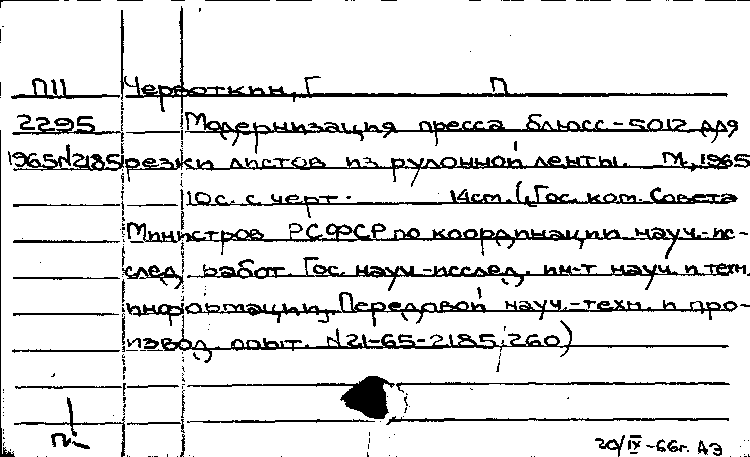 П11 Червоткин, Г П
2295 Модернизация пресса блисс-5012 для
1965N2185 резки листов из рулонной ленты. М., 1965
10с. с черт. 14см. (Гос. ком. Совета
Министров РСФСР по координации науч.-ис-
след. работ. Гос. науч.-исслед. ин-т науч. и техн.
информации. Передовой науч.-техн. и про-
извод. опыт. N21-65-2185/260)
20/IX-66г. АЭ